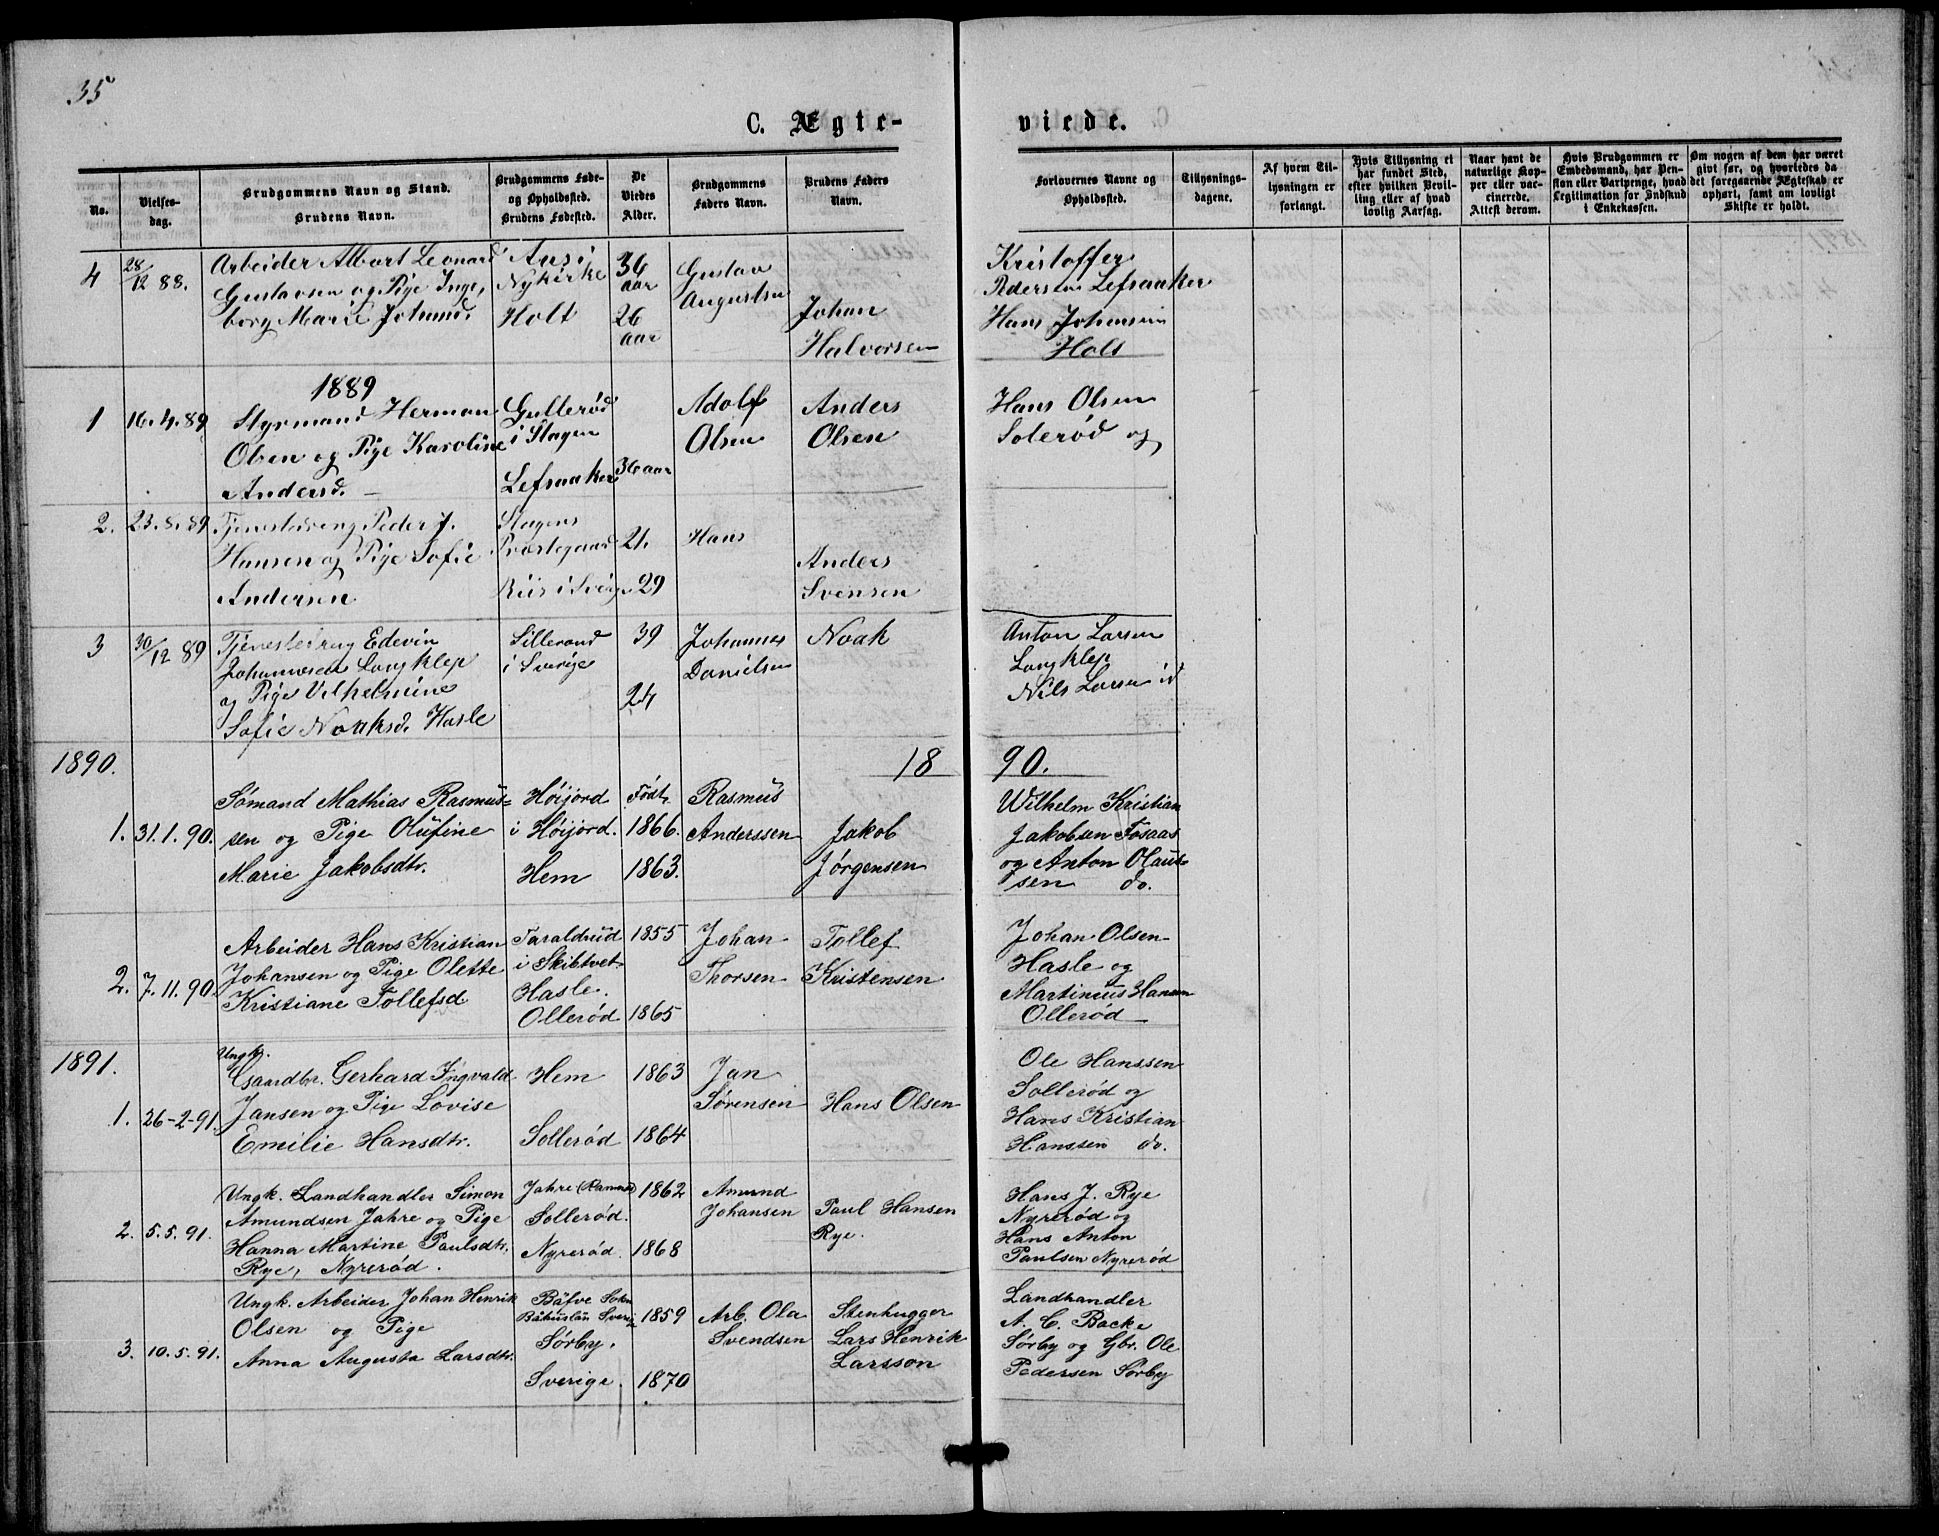 35
C. Ægte-
viede.
No.
Vielses-
dag.
Brudgommens Navn og Stand.
Brudens Navn.
Brudgommens Føde-
og Opholdssted.
Brudens Fødested.
De
Viedes
Alder.
Brudgommens
Faders Navn.
Brudens Faders
Navn.
Forlovernes Navne og
Opholdssted.
Tillysnings-
dagene.
Af hvem Til-
lysningen er
forlangt.
Hvis Tillysning ei
har fundet Sted,
efter hvilken Bevil-
ling eller af hvad
lovlig Aarsag.
Naar havt de
naturlige Kop-
per eller vac-
cinerede.
Attest derom.
Hvis Brudgommen er
Embedsmand, har Pen-
sion eller Vartpenge, hvad
Legitimation for Indskud
i Enkekassen.
Om nogen af dem har været
givt før, og hvorledes da
det foregaaende Ægteskab er
ophørt, samt om lovligt
Skifte er holdt.
4
28/12 88.
Arbeider Albert Leonard
Gustavsen og Pige Inge,
borg Marie Johansd.
Aus i
Nykirke
Holt
36
aar
26
aar
Gustav
Augustsen
Johan
Halvorsen
Kristoffer
Pedersen Lefsaaker
Hans Johansen
Holt
1889
1
16.4.89
Styrmand Herman
Olsen og Pige Karoline
Andersd.
Gullerød
i Slagen
Lefsaaker
36 aar
Adolf
Olsen
Anders
Olsen
Hans Olsen
Solerød og
2.
23.8.89
Tjenestedreng Peder J.
Hansen og Pige Sofie
Andersen
Slagens
Præstegaard
i Sverige
21.
29
Hans
Anders
Svensen
3
30/12 89
Tjenestedreng Edevin
Johannesen Langklep
og Pige Vilhelmine
Sofie Noaksd. Hasle
Sillerud
i Sverige
39
24
Johannes
Danielsen
Noak
Anton Larsen
Langklep
Nils Larsen id
1890.
18
90.
1. 31.1.90.
Sømand Mathias Rasmus-
sen og Pige Olufine
Marie Jakobsdtr.
Høijord
i Høijord.
Hem
Født
1866.
1863.
Rasmus
Anderssen
Jakob
Jørgensen
Wilhelm Kristian
Jakobsen Fosaas
og Anton Olaus-
sen do.
2. 7.11.90.
Arbeider Hans Kristian
Johansen og Pige Olette
Kristiane Tollefsd
Taraldrud
i Skibtvet
Hasle.
Ollerød
1855
1865
Johan
Thorsen
Tollef
Kristensen
Johan Olsen
Hasle og
Martinius Hansen
Ollerød
1891.
1. 26-2-91.
Ungk.
Gaardbr. Gerhard Ingvald
Jansen og Pige Lovise
Emilie Hansdtr.
Hem
Sollerød
1863
1864
Jan
Sørensen
Hans Olsen
Ole Hanssen
Sollerød og
Hans Kristian
Hanssen do.
2. 5.5.91.
Ungk. Landhandler Simon
Amundsen Jahre og Pige
Hanna Martine Paulsdtr.
Rye, Nyrerød.
Jahre (Ramnes)
Sollerød.
Nyrerød.
1862
1868
Amund
Johansen
Paul Hansen
Rye.
Hans J. Rye
Nyrerød og
Hans Anton
Paulsen Nyrerød
3. 10.5.91.
Ungk. Arbeider Johan Henrik
Olsen og Pige
Anna Augusta Larsdtr.
Bäfve Sokn
Båhuslän Sverig
Sørby.
Sverige.
1859
1870
Arb. Ola
Svendsen
Stenhugger
Lars Henrik
Larsson
Landhandler
A. C. Backe
Sørby og Gbr. Ole
Pedersen Sørby